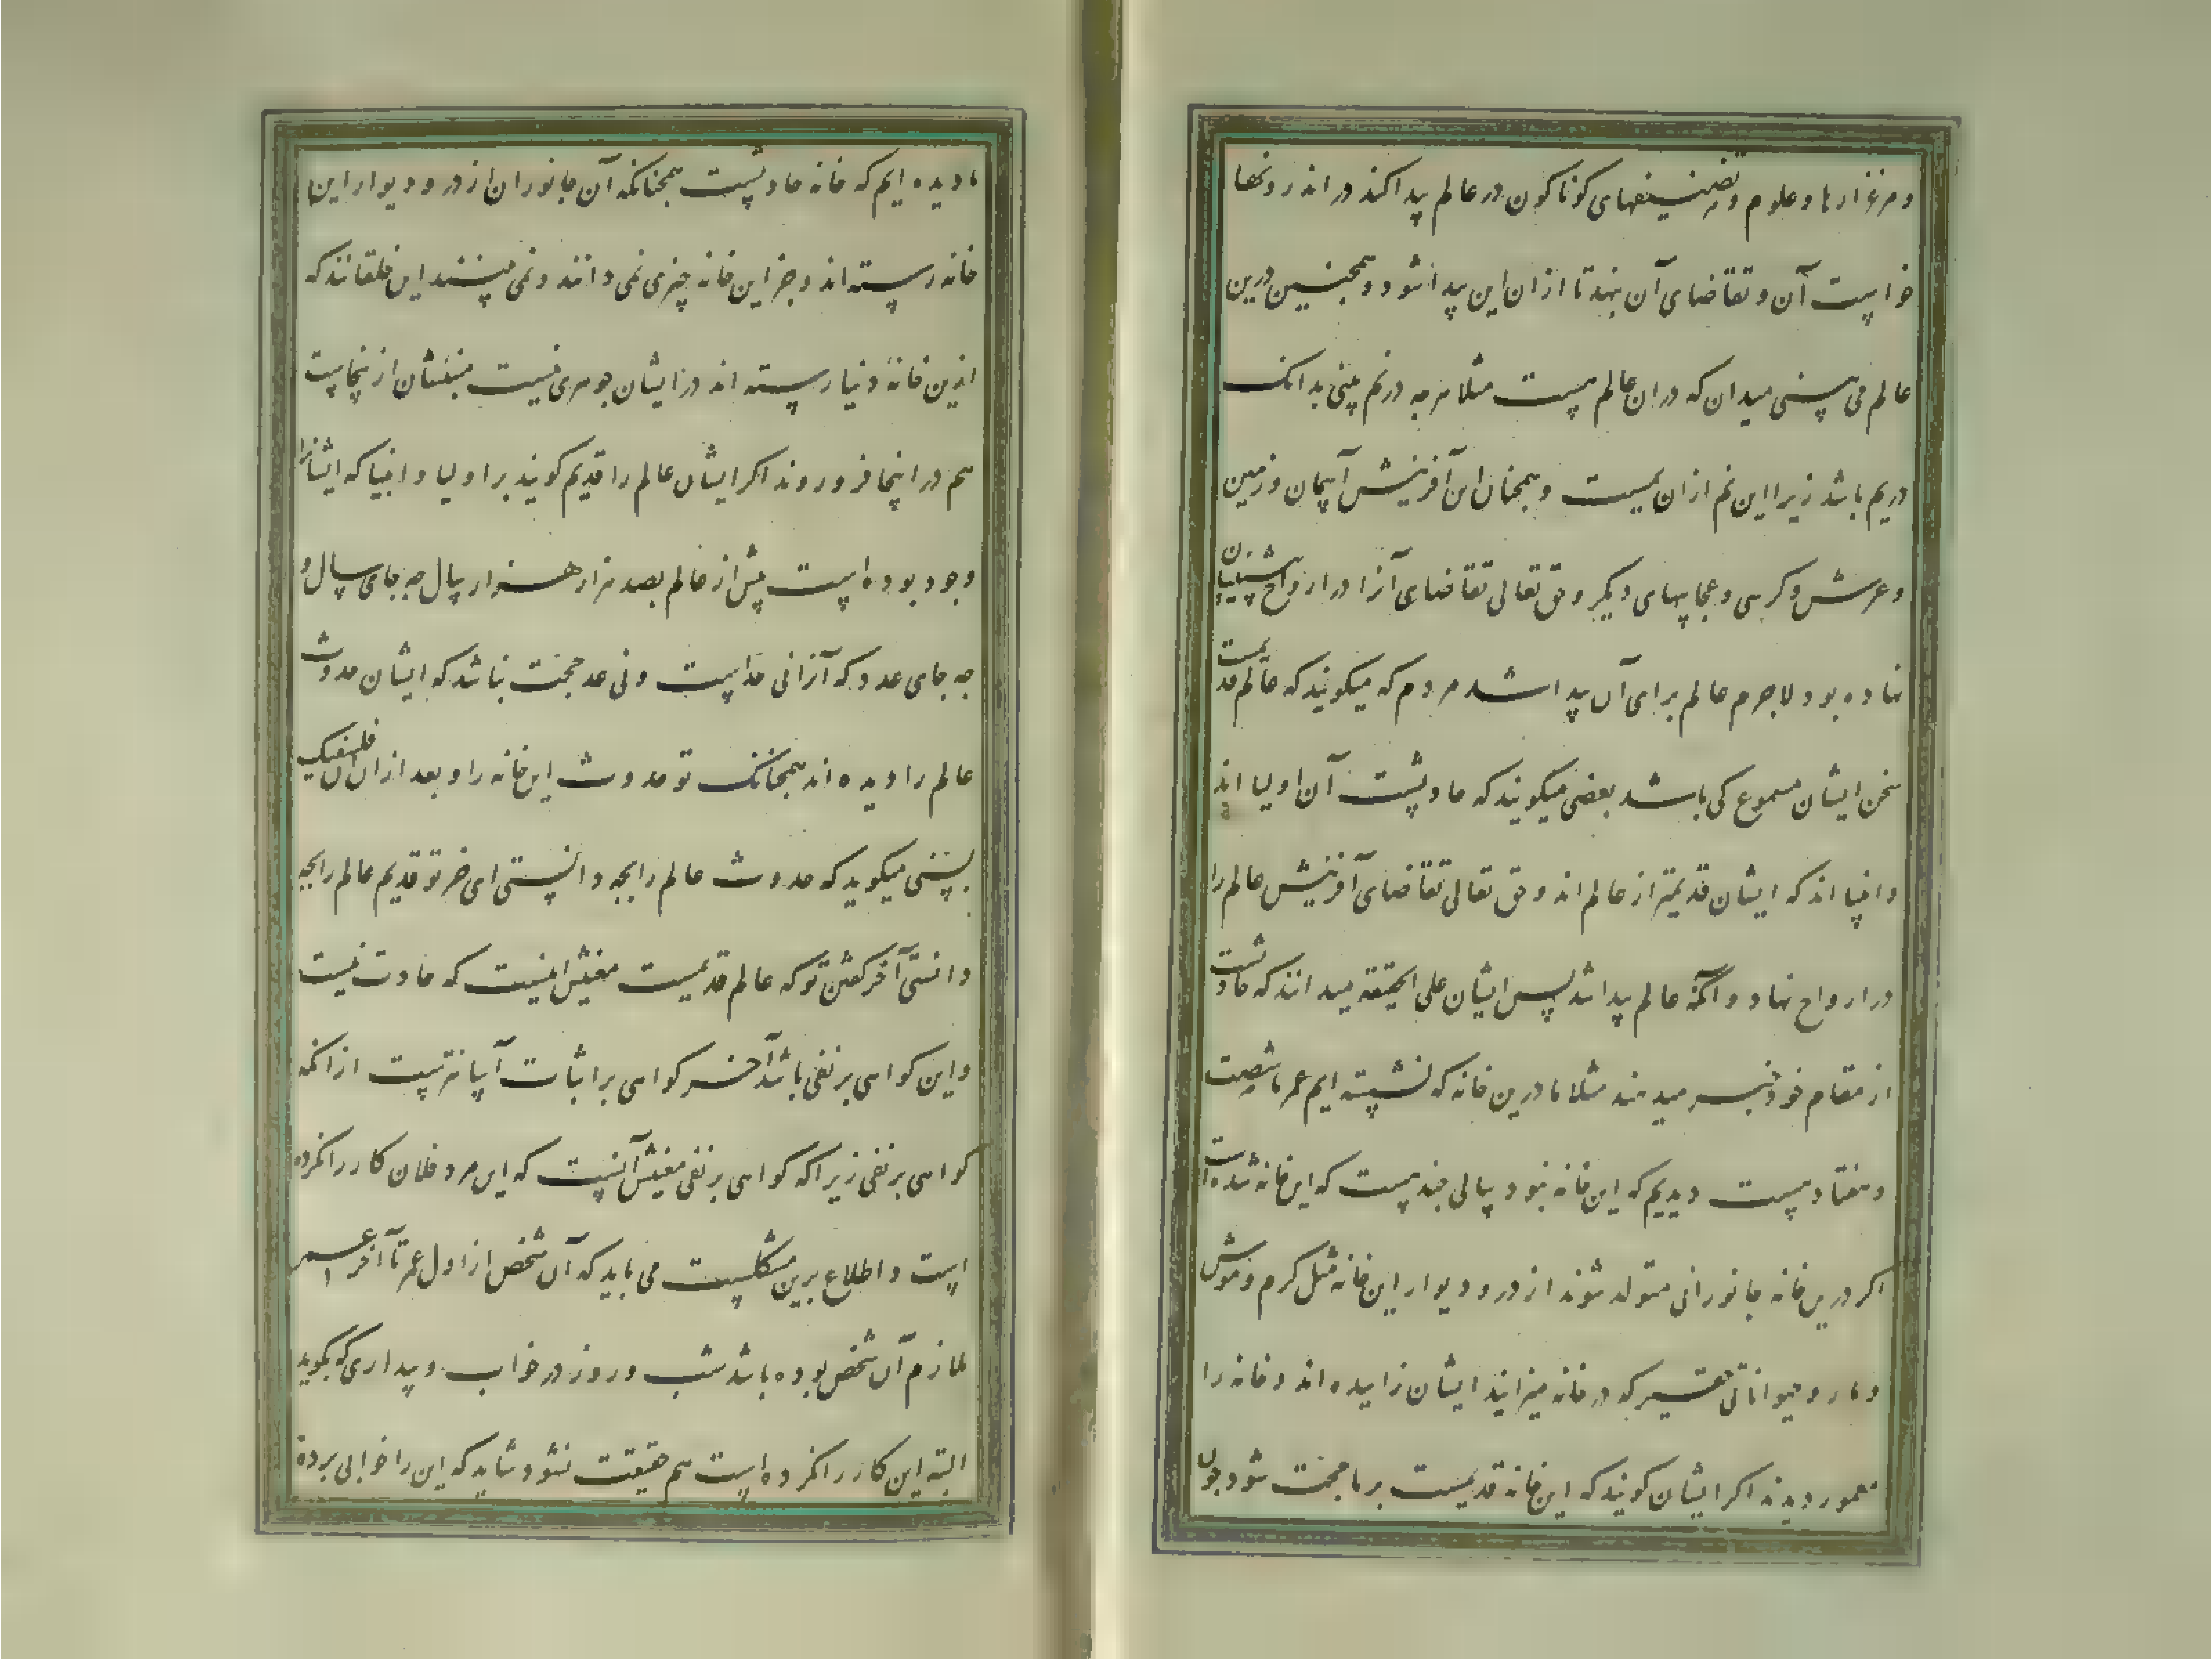 و مرغزارها و علوم و تصنیفهای کوناکون در عالم پیدا کند در اندرونها
خواست آن و تقاضای آن بنهد تا ازان این پیدا شود و همجنین درین
عالم می بینی میدان که دران عالم هست مثلا هرجه در نم بینی بدانک
دریم باشد زیرا این نم ازان یمست و همجنان این آفرینش آسمان و زمین
و عرش و کرسی و عجایبهای دیکر و حق تعالی تقاضای آنرا در ارواح پیشینیان
نهاده بود لاجرم عالم برای آن پیدا شد مردم که میکویند که عالم قدیمست
سخن ایشان مسموع کی باشد بعضی میکویند که حادثست آن اولیا اند
و انبیا اند که ایشان قدیمتر از عالم اند و حق تعالی تقاضای آفرینش عالم را
در ارواح نهاد و آنکه عالم پیدا شد پس ایشان علی الحقیقه میدانند که حادثست
از مقام خود خبر میدهند مثلا ما درین خانه که نشسته ایم عمر ما شصت
و هفتاد هست دیدیم که این خانه نبود سالی جند هست که این خانه شده است
اکر درین خانه جانورانی متولد شوند از در و دیوار این خانه مثل کرم و موش
و مار و حیواناتی حقیر که در خانه میزایند ایشان زاییده اند و خانه را
معمور دیدند اکر ایشان کویند که این خانه قدیمست بر ما حجت نشود جون
ما دیده ایم که خانه حادثست همجنانکه آن جانوران از در و دیوار این
خانه رسته اند و جز این خانه چیزی نمی دانند و نمی بینند این خلقانند که
ازین خانۀ دنیا رسته اند در ایشان جوهری نیست منبتشان ازینجاست
هم در اینجا فرو روند اکر ایشان عالم را قدیم کویند بر اولیا و انبیا که ایشانرا
وجود بوده است پیش از عالم بصد هزار هزار سال جه جای سال و
جه جای عدد که آنرا نی حداست و نی عد حجت نباشد که ایشان حدوث
عالم را دیده اند همجنانک تو حدوث این خانه را و بعد ازان آن فلسفیک
بسنی میکوید که حدوث عالم را بجه دانستی ای خر تو قدیم عالم را بجه
دانستی آخر کفتن تو که عالم قدیمست معنیش اینست که حادث نیست
و این کواهی بر نفی باشد آخر کواهی بر اثبات آسانترست از آنکه
کواهی بر نفی زیرا که کواهی بر نفی معنیش آنست که این مرد فلان کار را نکرده
است و اطلاع برین مشکلست می باید که آن شخص از اول عمر تا آخر عمر
ملازم آن شخص بوده باشد شب و روز در خواب و بیداری که بکوید
البته این کار را نکرده است هم حقیقت نشود شاید که این را خوابی برده